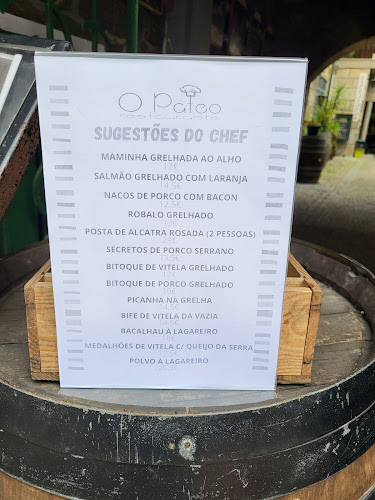 O Pateo
restaurante
SUGESTÕES DO CHEF
MAMINHA GRELHADA AO ALHO
12€
SALMÃO GRELHADO COM LARANJA
14.5€
NACOS DE PORCO COM BACON
12.5€
ROBALO GRELHADO
POSTA DE ALCATRA ROSADA (2 PESSOAS)
SECRETOS DE PORCO SERRANO
BITOQUE DE VITELA GRELHADO
BITOQUE DE PORCO GRELHADO
PICANHA NA GRELHA
BIFE DE VITELA DA VAZIA
BACALHAU À LAGAREIRO
MEDALHÕES DE VITELA C/ QUEIJO DA SERRA
POLVO À LAGAREIRO